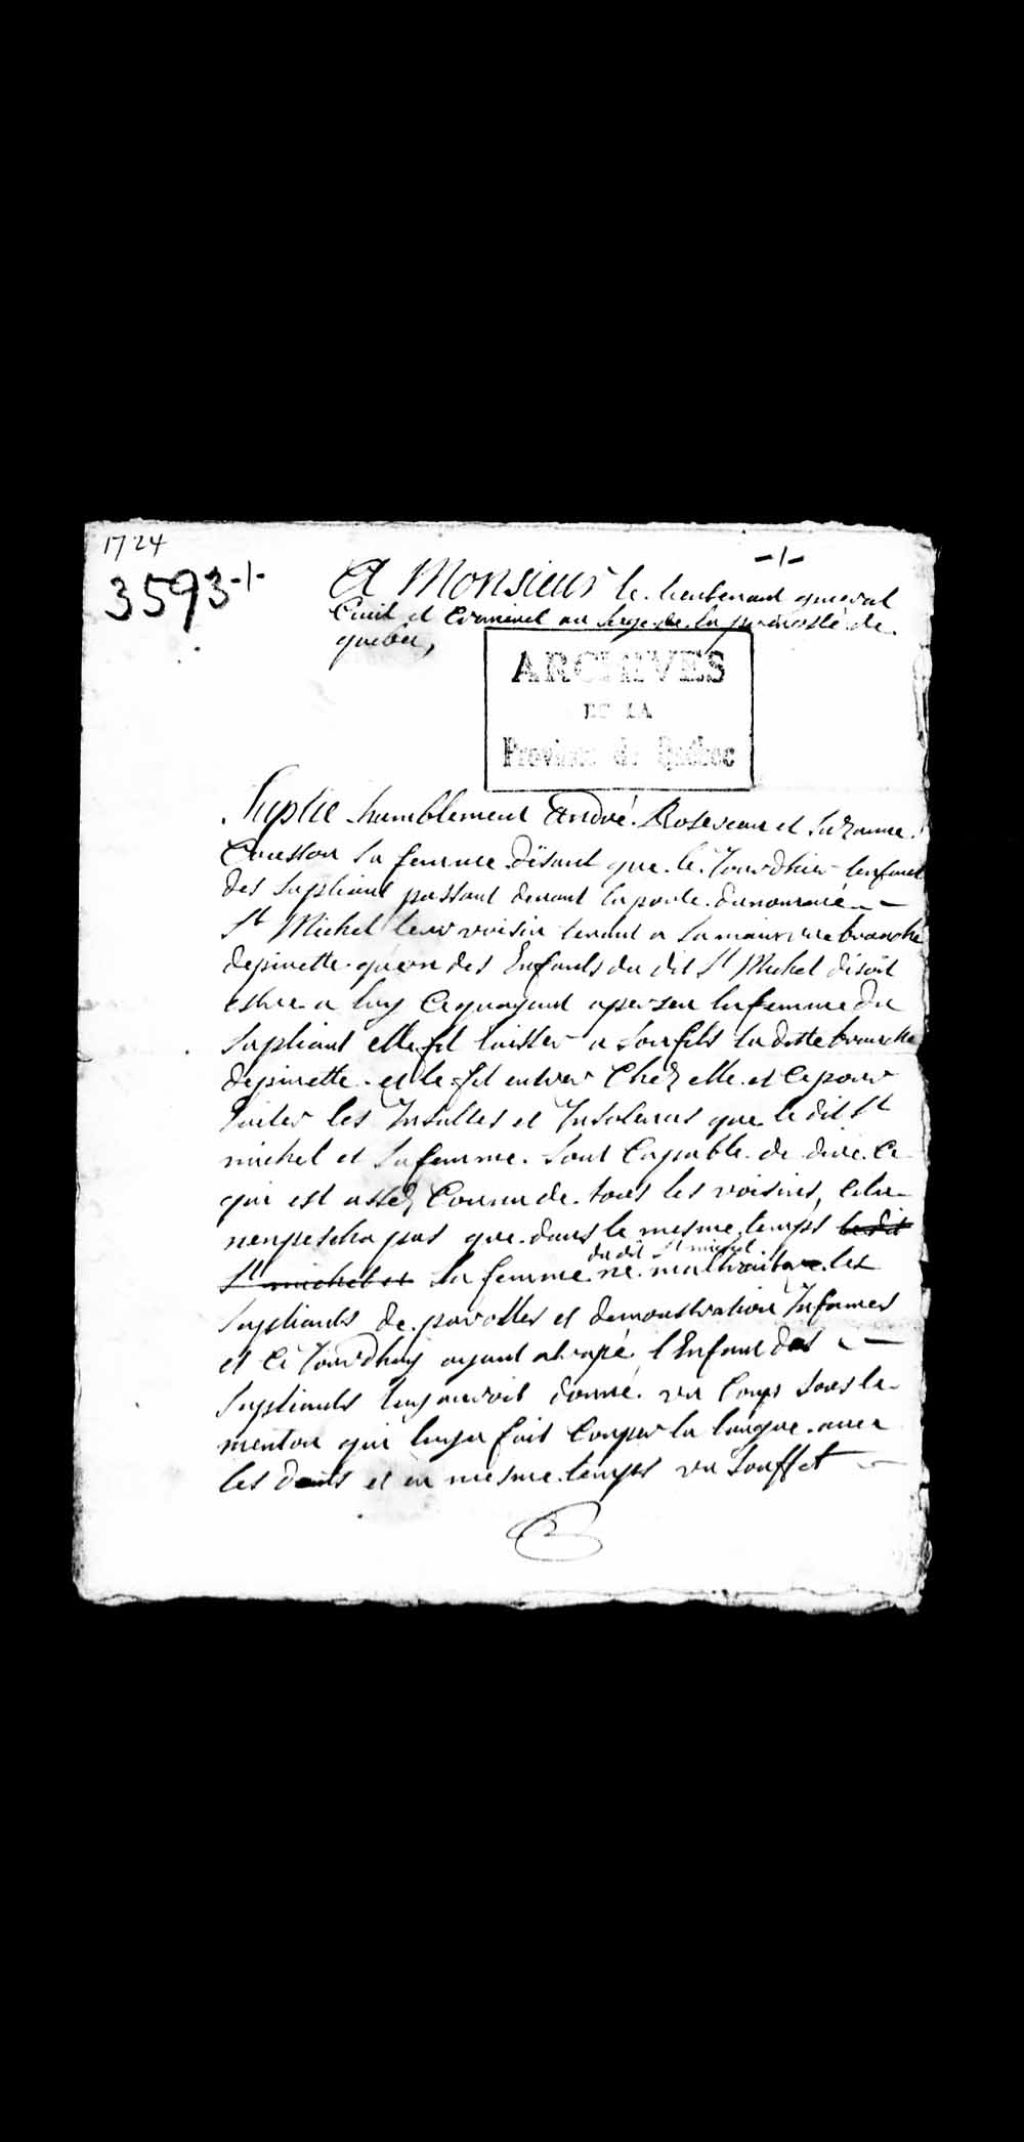 1724
3593-1-
-1-
A Monsieur le lieutenant general
Civil et Criminel au siege de la prevosté de
quebec,
ARCHIVES
DE LA
Province de Québec
Suplie humblement André
sa femme disant que le Jourdhier lenfant
des Supliant passant devant la porte du nommé
St Michel leur voisin tenant a sa main une branche
depinette quun des Enfants du dit St Michel disoit
estre a luy Ce quayant aperseu la femme du
Supliant elle fit laisser a son fils la ditte branche
depinette et le fit entrer Chez elle et Ce pour
Eviter les Insultes et Insolences que le dit St
michel et sa femme sont Capable de dire Ce
qui est assez Connu de tous les voisins, Cela
nenpescha pas que dans le mesme temps le dit
St michel et sa femme du dit St michel ne maltraita les
Supliants de parolles et demonstration Infames
et Ce Jourdhuy ayant atrapé l'Enfant des
Supliants luy auroit donné un Coup sous le
menton qui luy a fait Couper la langue avec
les dents et en mesme temps un soufflet